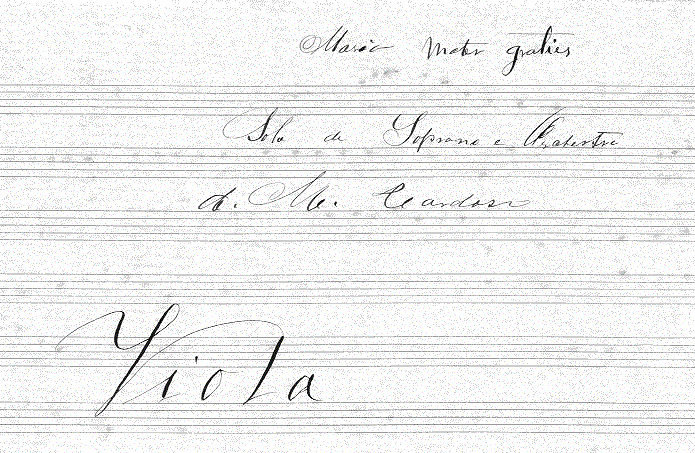 Maria Mater gratiés
Solo de Soprano e Orchestra
d. M. Cardoso
Viola